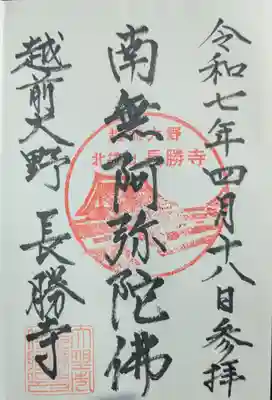 令和七年四月十八日参拝
南無阿弥陀佛
越前大野 長勝寺
長勝寺